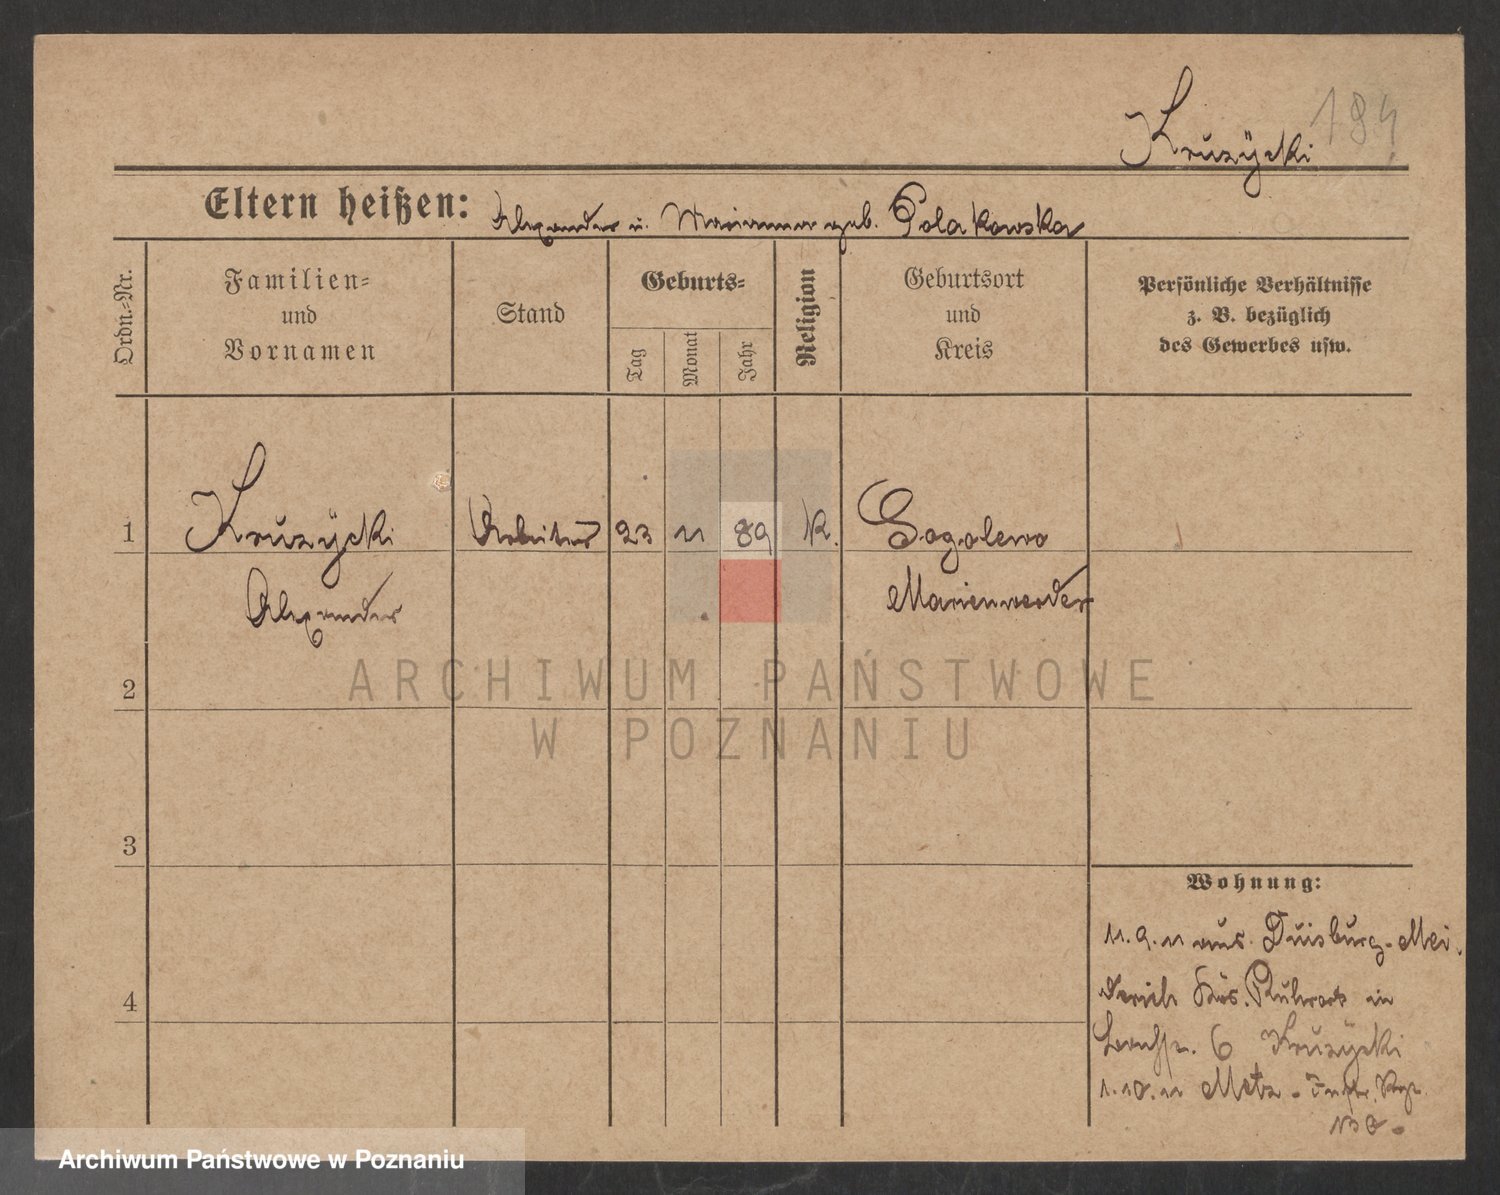 184
Kružycki
Eltern heißen: Alexander u. Marianna geb. Polakowska
Ordn.-Nr.
Familien-
und
Vornamen
Stand
Geburts-
Tag
Monat
Jahr
Religion
Geburtsort
und
Kreis
Persönliche Verhältnisse
z. B. bezüglich
des Gewerbes usw.
1
Kružycki
Arbeiter
23
11
89
K.
Gogolewo
Alexander
Marienwerder
2
3
4
Wohnung:
11.9.11 aus Duisburg-Mei
derich Krs. Ruhrort in
6 Kružycki
1.10.11 Metz - Inftr. Rgt.
130 -
ARCHIWUM PAŃSTWOWE
W POZNANIU
Archiwum Państwowe w Poznaniu